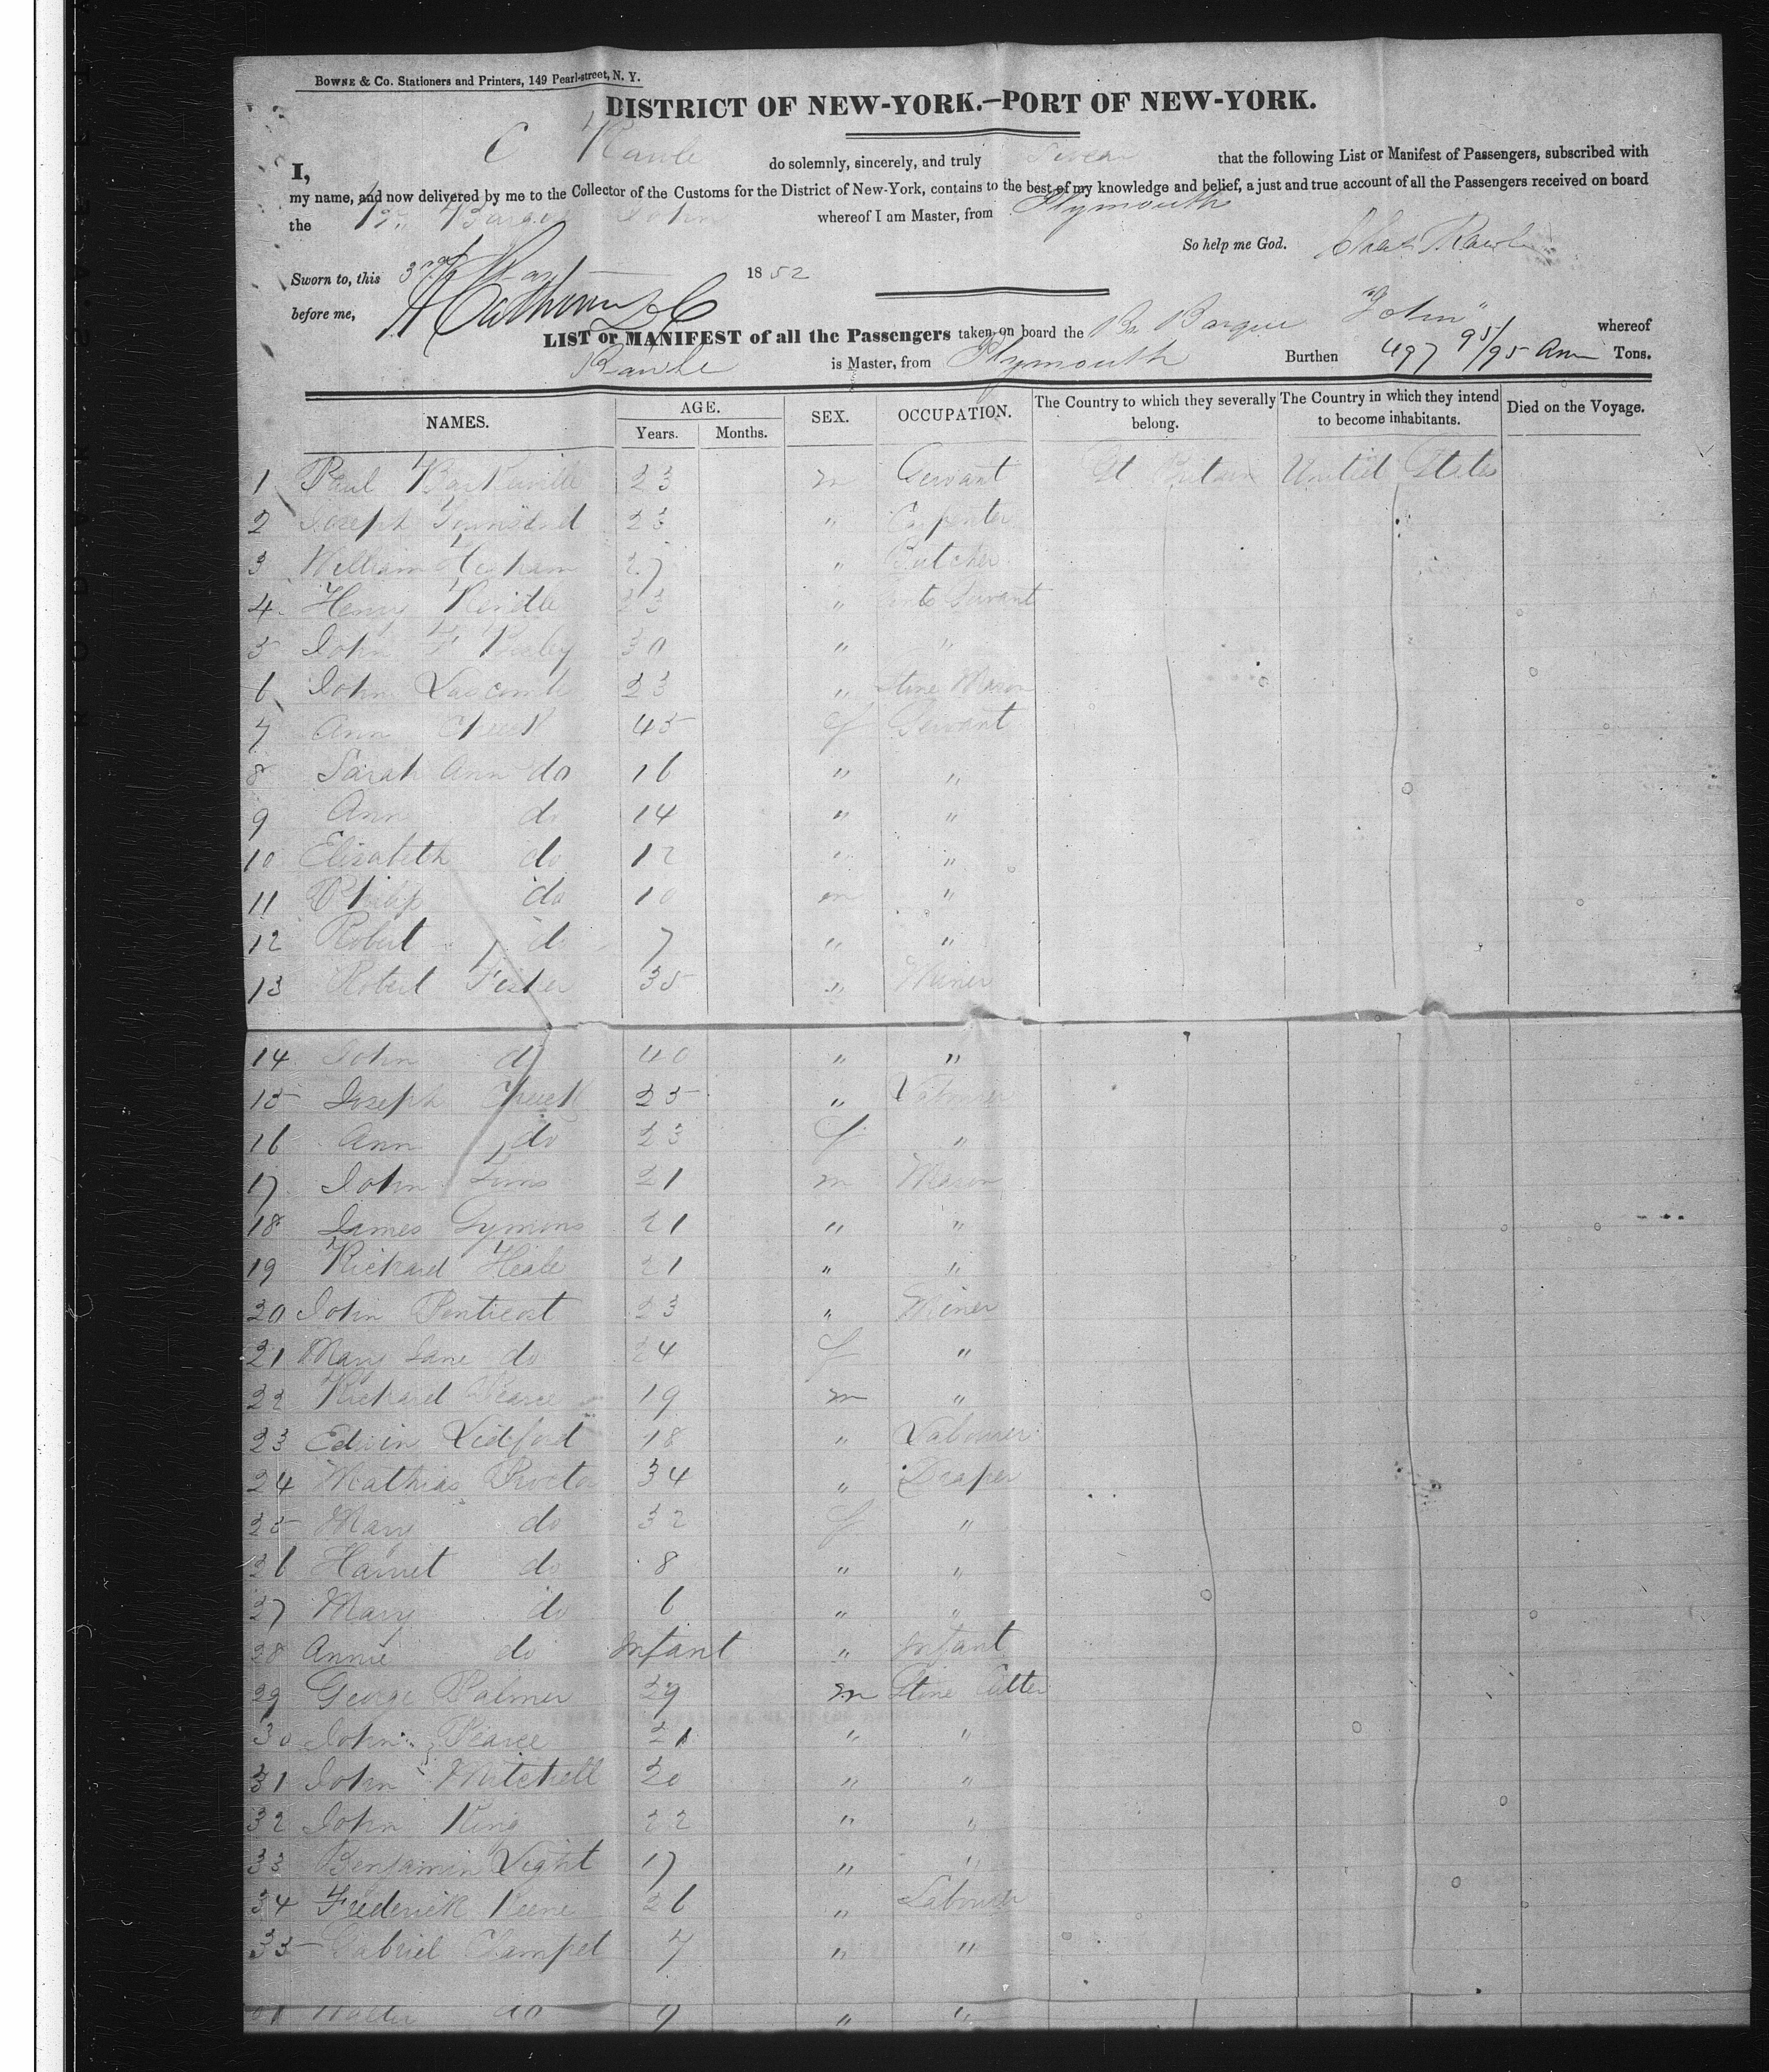 BOWNE & Co. Stationers and Printers, 149 Pearl-street, N. Y.
DISTRICT OF NEW-YORK.—PORT OF NEW-YORK.
I, C Rawle do solemnly, sincerely, and truly Swear that the following List or Manifest of Passengers, subscribed with
my name, and now delivered by me to the Collector of the Customs for the District of New-York, contains to the best of my knowledge and belief, a just and true account of all the Passengers received on board
the Br. Barque John whereof I am Master, from Plymouth
So help me God. Chas Rawle
Sworn to, this 3rd May 1852
before me,
LIST or MANIFEST of all the Passengers taken on board the Br Barque "John" whereof
Rawle is Master, from Plymouth Burthen 497 95/95 Tons.
NAMES. AGE. SEX. OCCUPATION. The Country to which they severally belong. The Country in which they intend to become inhabitants. Died on the Voyage.
Years. Months.
1 Paul 23 m Servant Gt Britain United States
2 Joseph Townsend 23 " Carpenter
3 William Higham 27 " Butcher
4 Henry 23 " Servant
5 John F 30 " "
6 John Lascomb 23 " Stone Mason
7 Ann 45 f Servant
8 Sarah Ann do 16 " "
9 Ann do 14 " "
10 Elizabeth do 12 " "
11 Philip do 10 m "
12 Robert do 7 " "
13 Robert Fisher 35 " Miner
14 John do 40 " "
15 Joseph 25 " Labourer
16 Ann do 23 f "
17 John Sims 21 m Mason
18 James Symons 21 " "
19 Richard Heale 21 " "
20 John Penticost 23 " Miner
21 Mary Jane do 24 f "
22 Richard Pearce 19 m "
23 Edwin Lidford 18 " Labourer
24 Mathias Proctor 34 " Draper
25 Mary do 32 f "
26 Harriet do 8 " "
27 Mary do 6 " "
28 Annie do Infant " Infant
29 George Palmer 29 m Stone Cutter
30 John Pearce 21 " "
31 John Mitchell 20 " "
32 John King 22 " "
33 Benjamin Light 17 " "
34 Frederick Keene 26 " Labourer
35 Gabriel Champel 7 " "
Walter do 9 " "